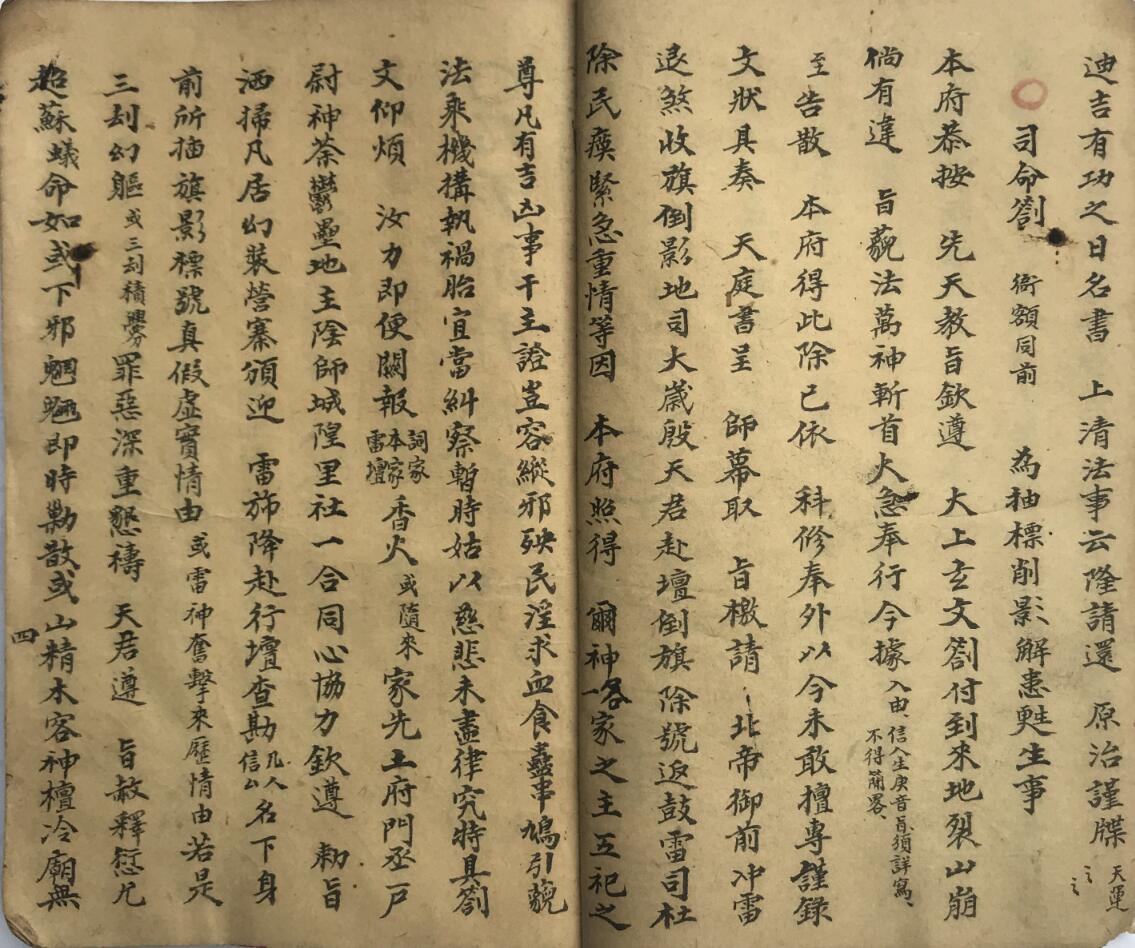 迪吉有功之日名書 上清法事云隆請還 原治謹牒 天運之之
司命劄 銜額同前 為抽標削影解患甦生事
本府恭按 先天教旨欽遵 大上玄文劄付到來地裂山崩
倘有違 旨藐法萬神斬首火急奉行今據入由、信人生庚音旨須詳寫、不得簡畧、
至告散 本府得此除已依 科修奉外以今未敢擅專謹錄
文狀具奏 天庭書呈 師幕取 旨檄請 北帝御前冲雷
退煞收旗倒影地司大歲殷天君赴壇倒旗除號返鼓雷司杜
除民瘼緊急重情等因 本府照得 爾神一家之主五祀之
尊凡有吉凶事干主證豈容縱邪殃民淫求血食蠱串鳩引藐
法乘機搆執禍胎宜當糾察暫時姑以慈悲未盡律究特具劄
文仰煩 汝力即便關報詞家本家雷壇香火或隨來家先土府門丞戶
尉神荼鬱壘地主陰師城隍里社一合同心協力欽遵 勅旨
洒掃凡居幻裝營寨頒迎 雷斾降赴行壇查勘凡人信士名下身
前所插旗影標號真假虛實情由或雷神奮擊來歷情由若是
三刦幻軀或三刦積釁罪惡深重懇禱 天君遵 旨赦釋愆尤
超蘇蟻命如或下邪魍魎即時勦散或山精木客神檀冷廟無
四